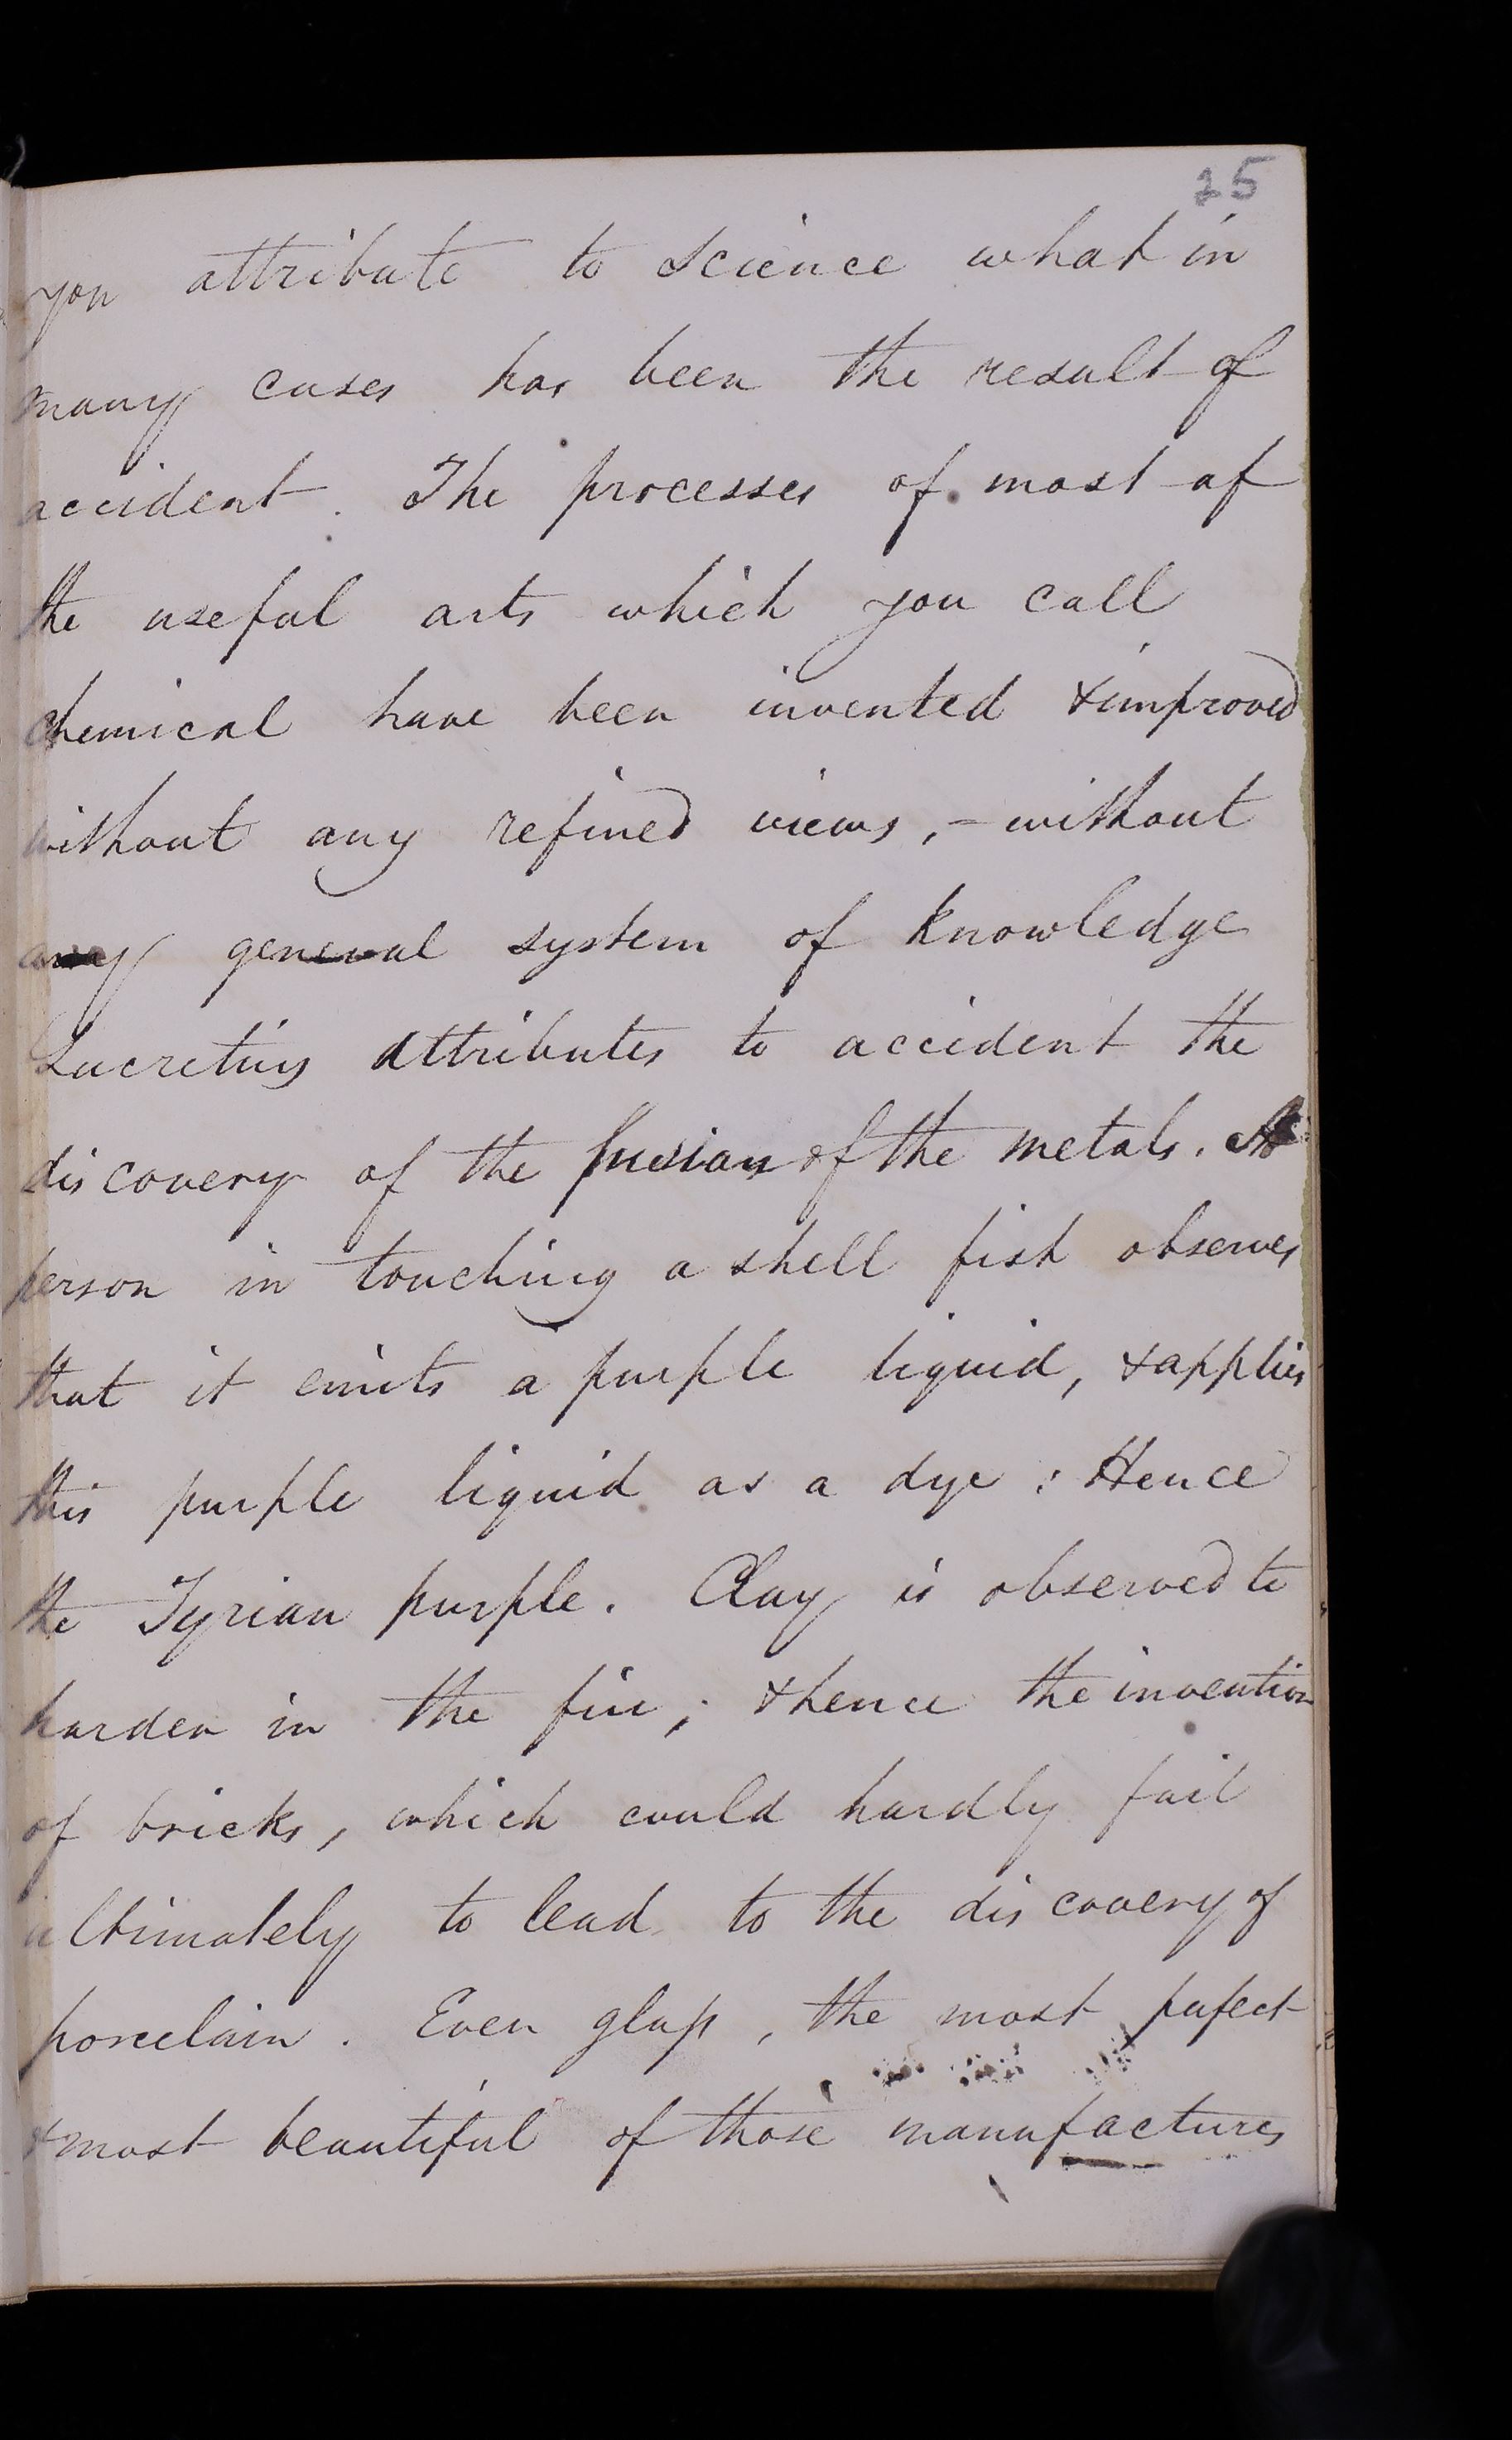 25
you attribute to Science what in
many cases has been the result of
accident. The processes of most of
the useful arts which you call
chemical have been invented & improved
without any refined views, - without
any general system of knowledge
Lucretius attributes to accident the
discovery of the fusion of the metals. A
person in touching a shell fish observes
that it emits a purple liquid, & applies
this purple liquid as a dye: Hence
the Tyrian purple. Clay is observed to
harden in the fire; & hence the invention
of bricks, which could hardly fail
ultimately to lead to the discovery of
porcelain. Even glass, the most perfect
& most beautiful of those manufactures